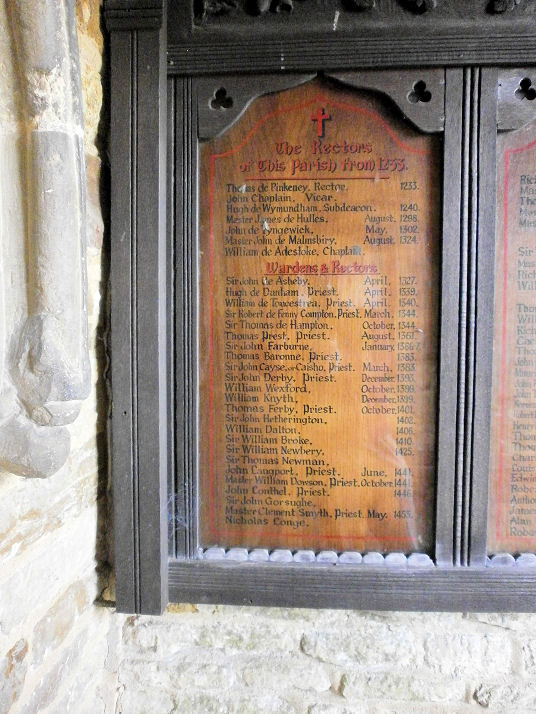 The Rectors
of This Parish from 1233.
Thomas de Pinkeney, Rector. 1233.
John Chaplain, Vicar.
Hugh de Wymundham, Subdeacon. 1240.
Mester Jones de Hulles, August. 1298.
John de Lyngewick, May. 1302.
Master John de Malmsbiry, August. 1324.
William de Adestoke, Chaplain.
Wardens & Rectors
Sir John de Asheby. April. 1327.
Hugh de Danham, Priest. April. 1339.
William de Toucestre, Priest. April. 1340.
Sir Robert de Fenny Compton, Priest. March. 1344.
Sir Thomas de Hampton. October. 1344.
Thomas Prest, Priest. August. 1361.
Sir John Farburne. January. 1386-7.
Thomas Baronne, Priest. 1383.
Sir John Cayse, or Caisho, Priest. March. 1383.
Sir John Derby, Priest. December. 1393.
William Wexford. October. 1399.
William Knyth. December. 1399.
Thomas Ferby, Priest. October. 1401.
Sir John Hetherington. 1402.
William Dalton. 1406.
Sir William Broke. 1410.
Sir William Newbery. 1425.
Sir Thomas Newman.
John Langport, Priest. June. 1441.
Master William Dowson, Priest. October. 1441.
John Conthel, Priest. 1446.
Sir John Gorsughe.
Master Clement Smyth, Priest. May. 1453.
Nicholas Conge.